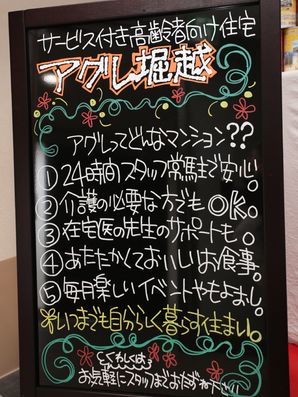 サービス付き高齢者向け住宅
アグレ堀越
アグレってどんなマンション??
① 24時間スタッフ常駐で安心。
② 介護の必要な方でもOK。
③ 在宅医の先生のサポートも。
④ あたたかくておいしいお食事。
⑤ 毎月楽しいイベントやもよおし。
いつまでも自分らしく暮らす住まい。
くわしくは
お気軽にスタッフまでおたずねください